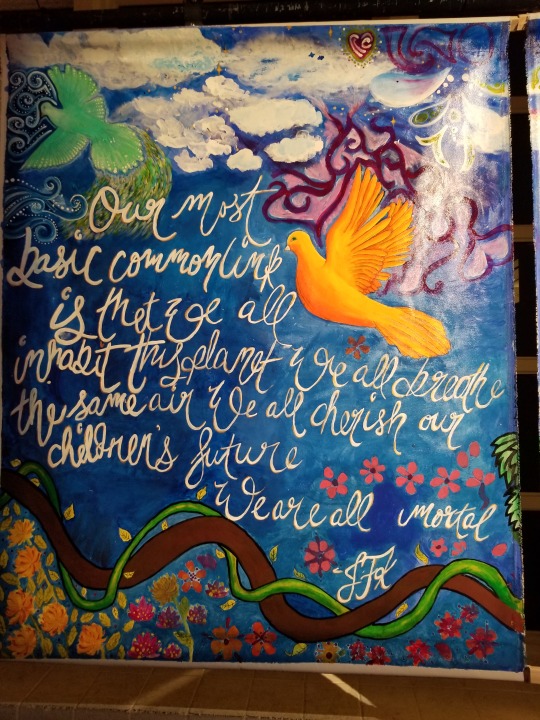 Our most
basic common link
is that we all
inhabit this planet We all breathe
the same air We all cherish our
children's future
We are all mortal
"JFK"